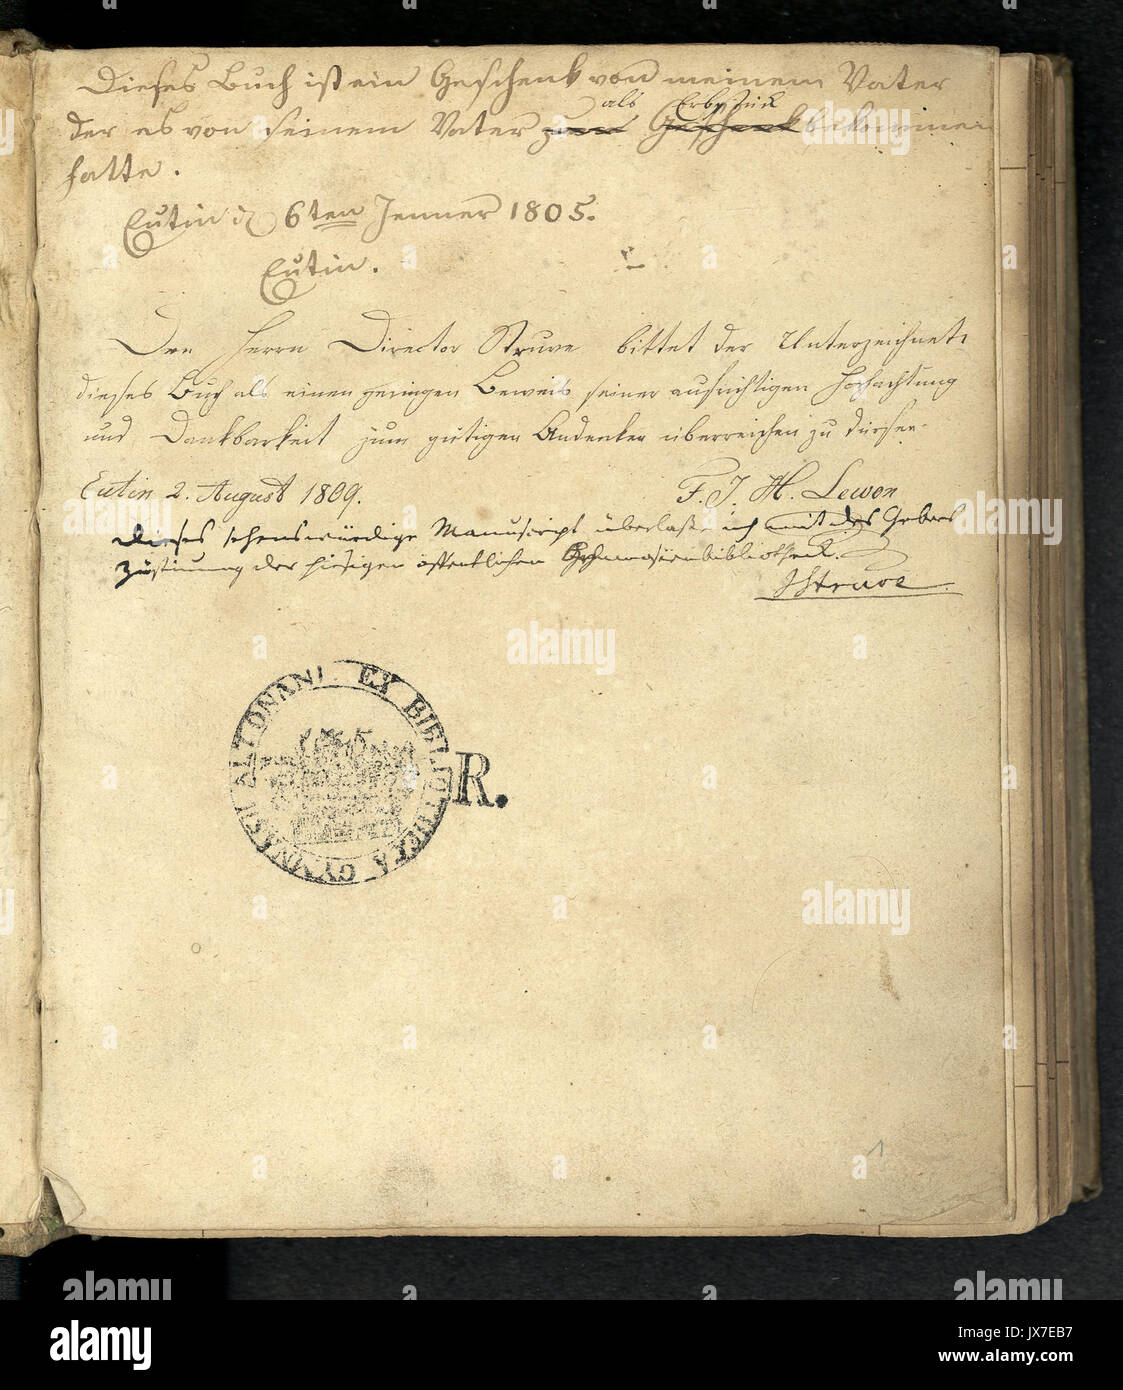 Dieses Buch ist ein Geschenk von meinem Vater
als Erbstück
der es von seinem Vater zum Geschenk bekommen
hatte.
Eutin d 6ten Jenner 1805.
Eutin.
Dem Herrn Director Struve bittet der Unterzeichnete
dieses Buch als einen geringen Beweis seiner aufrichtigen Hochachtung
und Dankbarkeit zum gütigen Andenken überreichen zu dürfen.
Eutin 2. August 1809.
F. J. H. Lewon
Dieses sehenswürdige Manuscript überlasse ich mit des Gebers
Zustimung der hiesigen öffentlichen Gymnasienbibliotheck.
JStruve
GYMNASII ALTONANI. EX BIBLIOTHECA
R.
1
alamy
alamy stock photo
JX7EB7
www.alamy.com